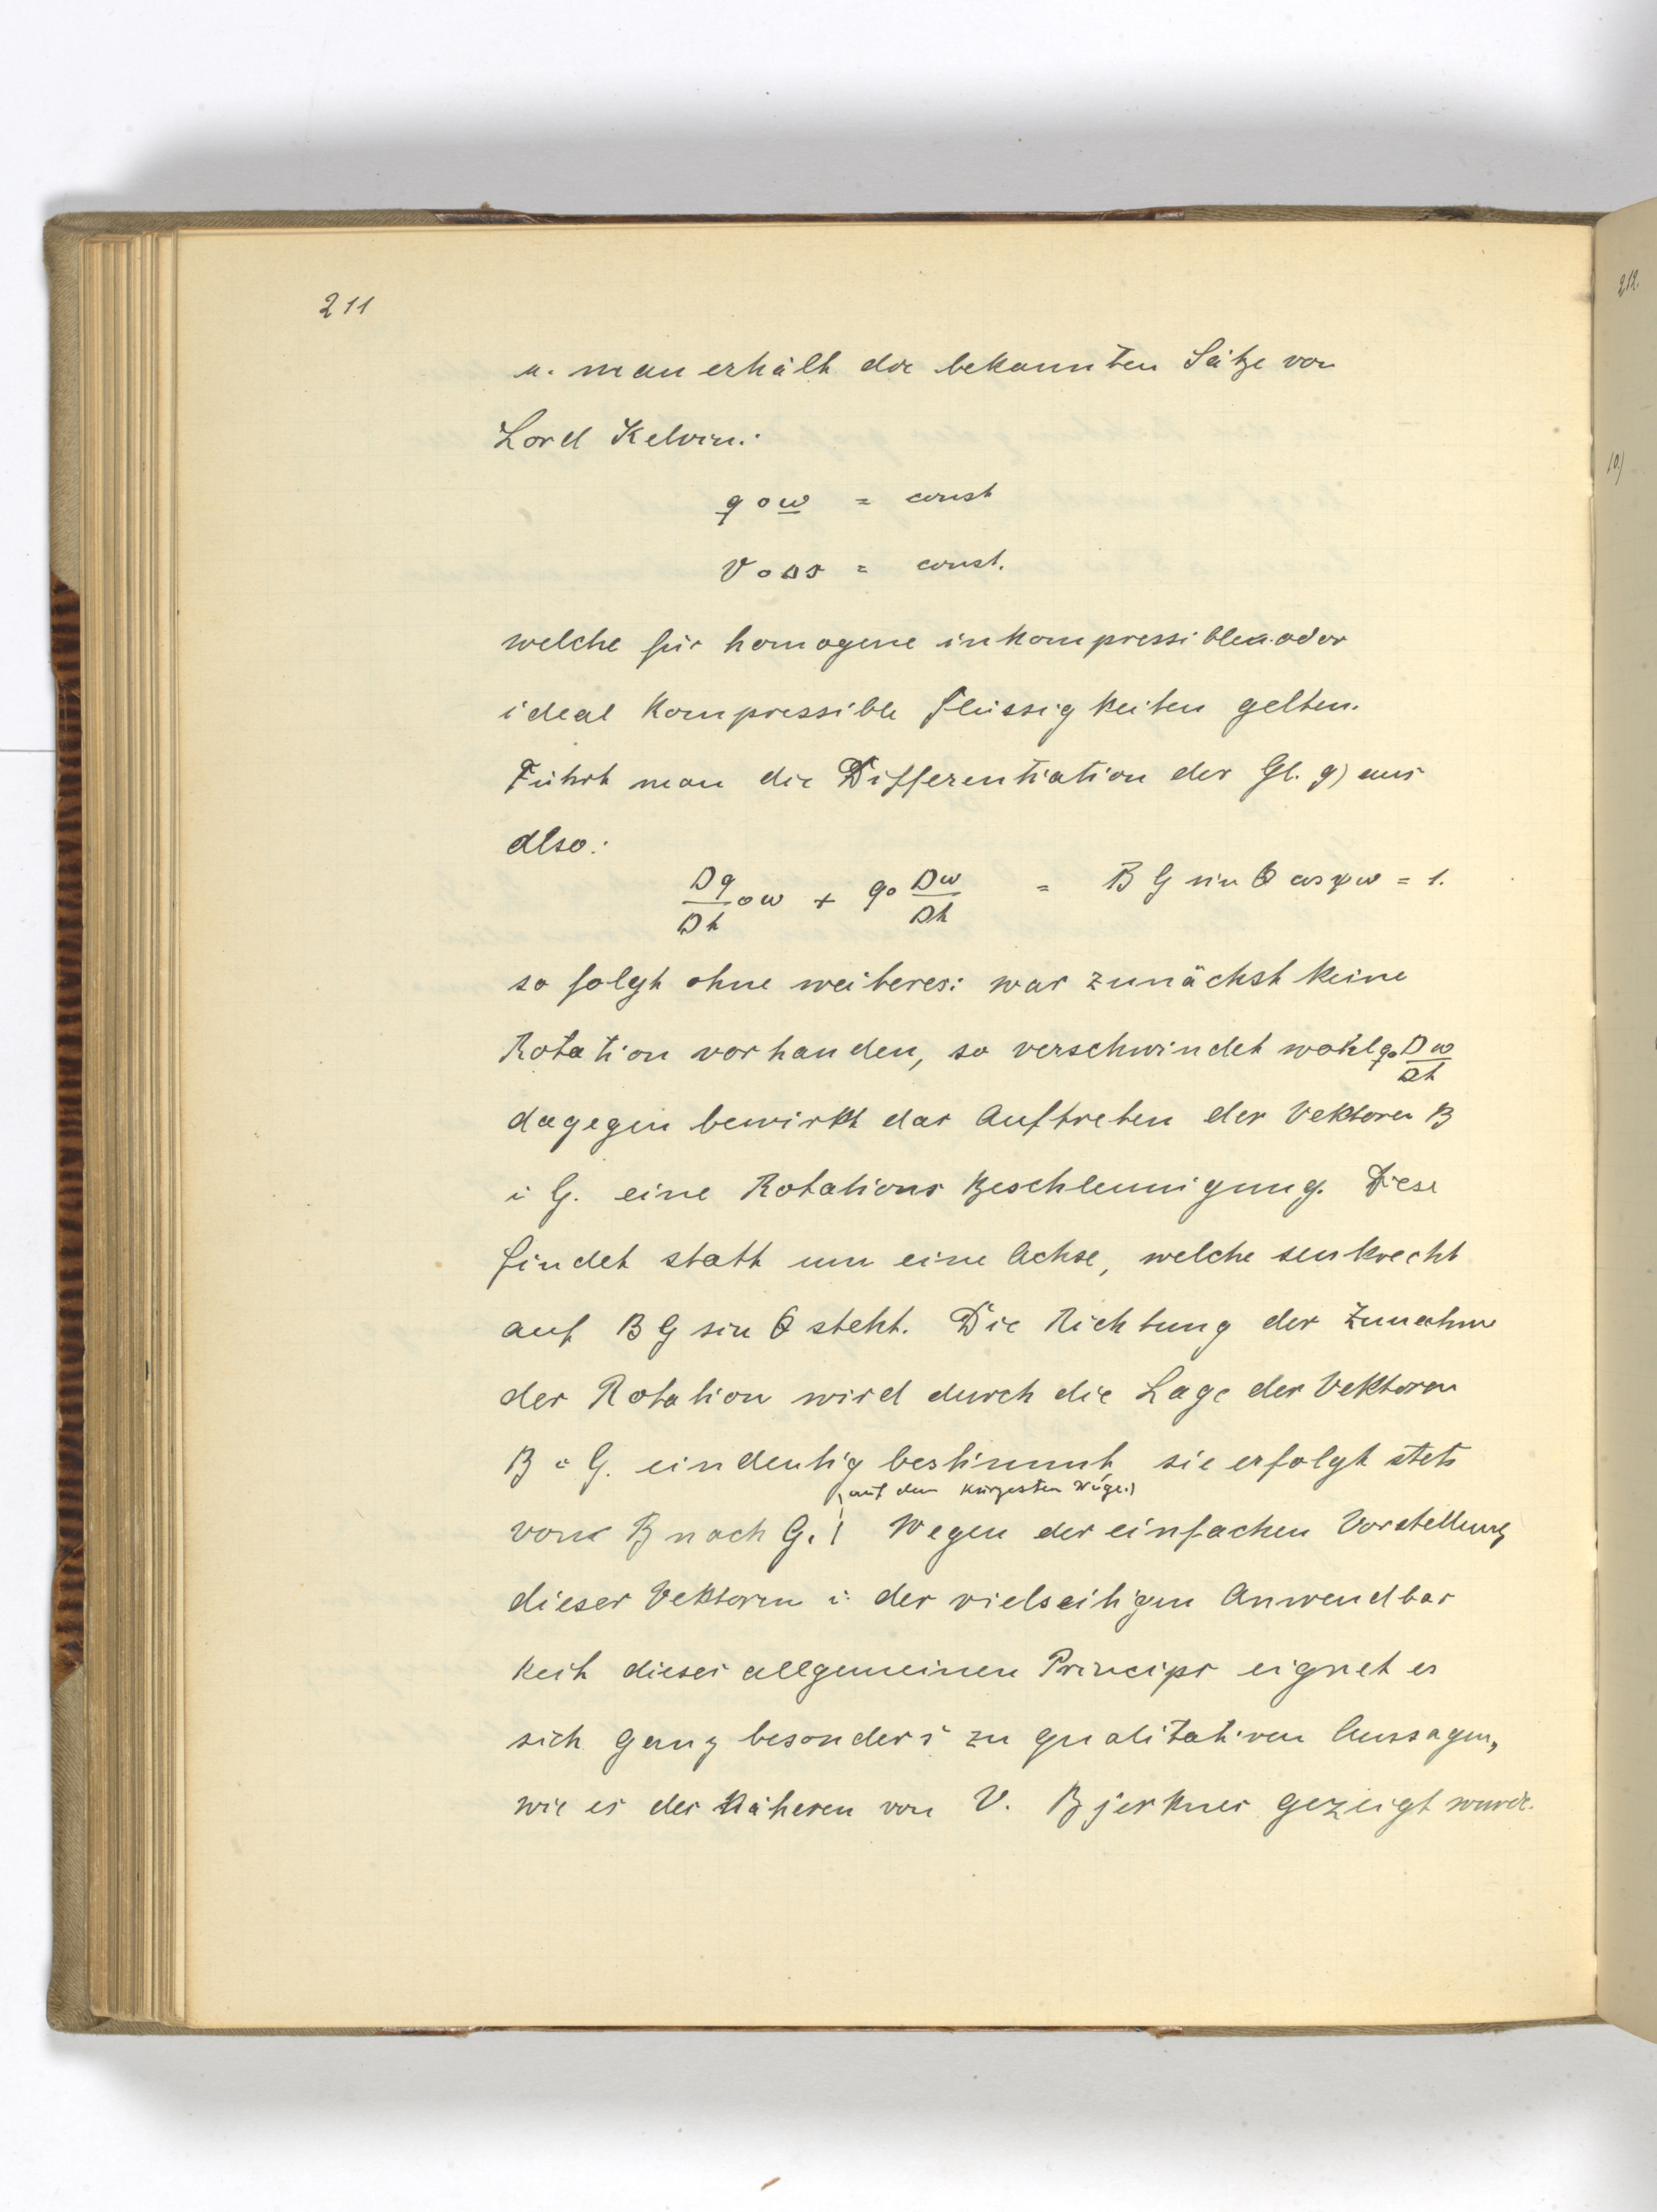 211
u. man erhält die bekannten Sätze von
Lord Kelvin:
q o ω = const
v o Δs = const.
welche für homogene inkompressiblen oder
ideal kompressible Flüssigkeiten gelten.
Führt man die Differentiation der Gl. 9) aus
also:
Dq/Dt o ω + q o Dω/Dt = B G sin Θ cos ψ ω = 1.
so folgt ohne weiteres: war zunächst keine
Rotation vorhanden, so verschwindet wohl q o Dω/Dt
dagegen bewirkt das Auftreten der Vektoren B
i G. eine Rotations Beschleunigung. Diese
findet statt um eine Achse, welche senkrecht
auf B G sin Θ steht. Die Richtung der Zunahme
der Rotation wird durch die Lage der Vektoren
B i G. eindeutig bestimmt, sie erfolgt stets
(auf dem kürzesten Wege.)
von B nach G. Wegen der einfachen Vorstellung
dieser Vektoren i. der vielseitigen Anwendbar
keit dieses allgemeinen Princips eignet es
sich ganz besonders zu qualitativen Aussagen,
wie es des Näheren von V. Bjerknes gezeigt wurde.
212.
10)